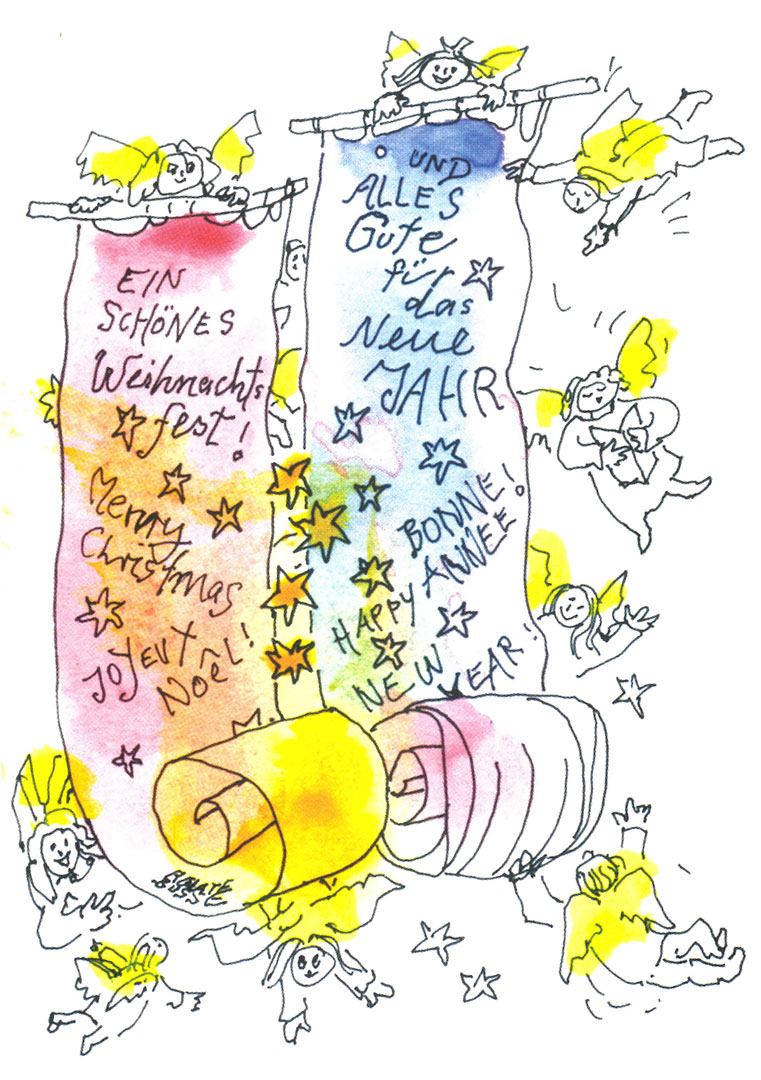 EIN
SCHÖNES
Weihnachts
fest!
Merry
Christmas
JOYEUX
NOËL!
UND
ALLES
Gute
für
das
Neue
JAHR
BONNE!
ANNÉE!
HAPPY
NEW YEAR!